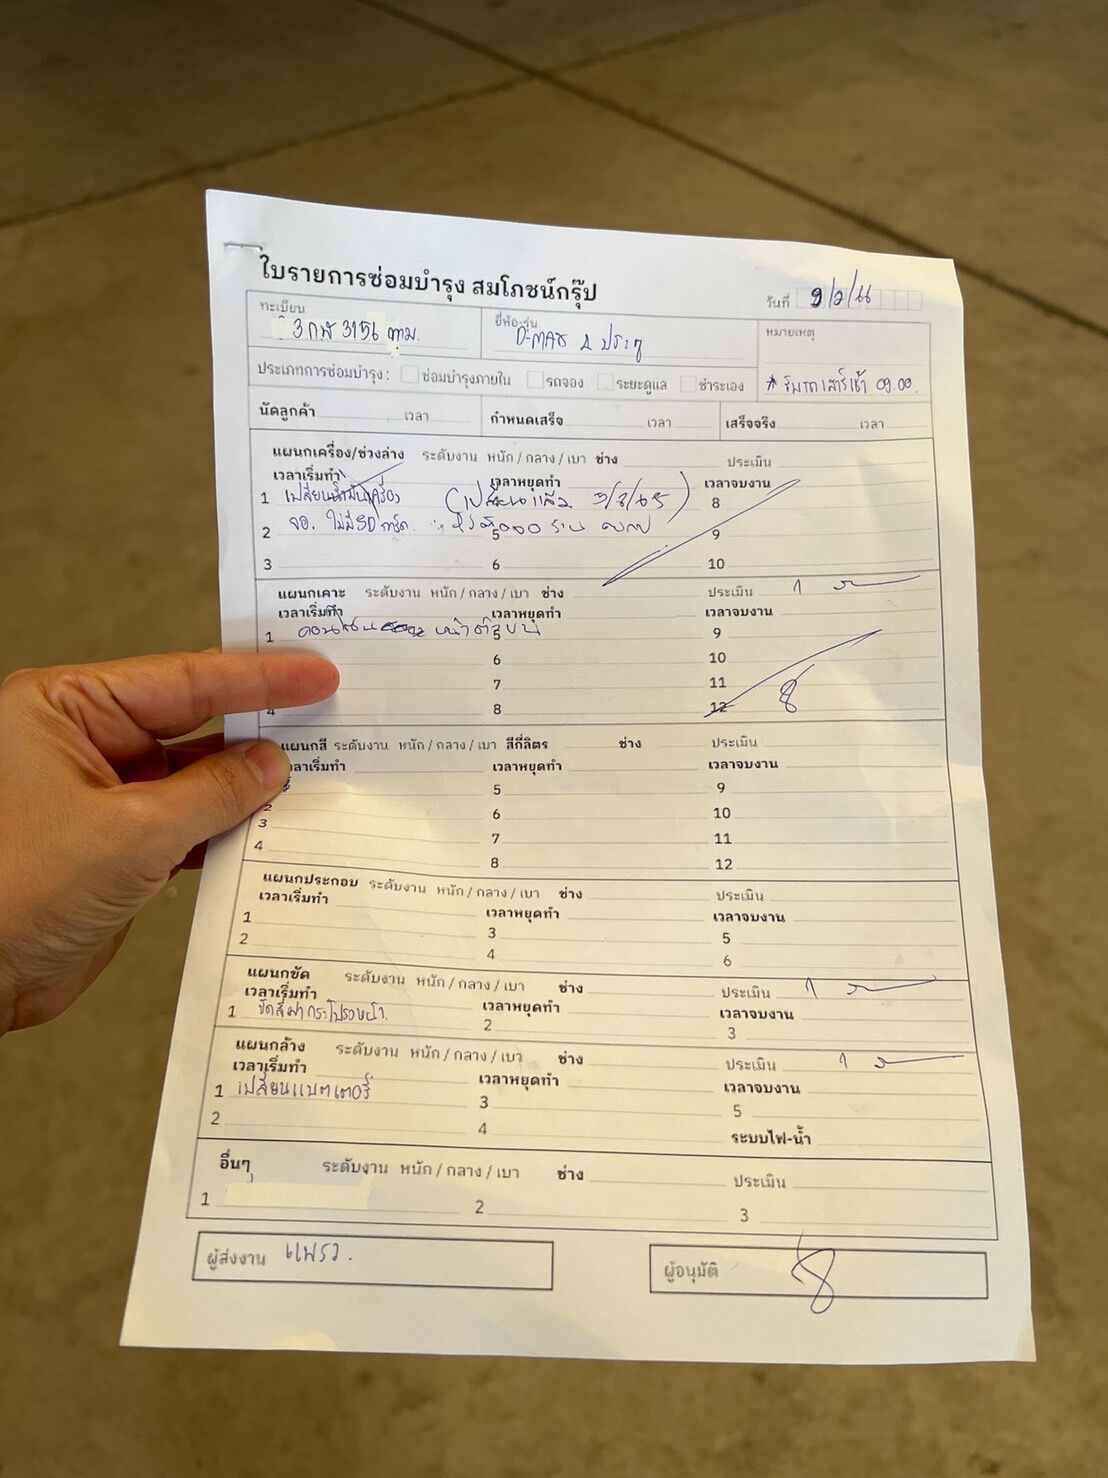 ใบรายการซ่อมบำรุง สมโภชน์กรุ๊ป
วันที่ 9/2/66
ทะเบียน ยี่ห้อ-รุ่น หมายเหตุ
3กฬ 3156 กทม. D-MAX 4 ประตู
ประเภทการซ่อมบำรุง : ซ่อมบำรุงภายใน รถจอง ระยะดูแล ชำระเอง * รับรถเสาร์เช้า 09.00.
นัดลูกค้า เวลา กำหนดเสร็จ เวลา เสร็จจริง เวลา
แผนกเครื่อง/ช่วงล่าง ระดับงาน หนัก / กลาง / เบา ช่าง ประเมิน
เวลาเริ่มทำ เวลาหยุดทำ เวลาจบงาน
1 เปลี่ยนน้ำมันเครื่อง (เปลี่ยนแล้ว ) 8
2 จอ. ไม่มี SD การ์ด. 5 9
3 6 10
แผนกเคาะ ระดับงาน หนัก / กลาง / เบา ช่าง ประเมิน 1
เวลาเริ่มทำ เวลาหยุดทำ เวลาจบงาน
1 5 9
6 10
7 11
4 8 12
แผนกสี ระดับงาน หนัก / กลาง / เบา สีกี่ลิตร ช่าง ประเมิน
เวลาเริ่มทำ เวลาหยุดทำ เวลาจบงาน
5 9
2 6 10
3 7 11
4 8 12
แผนกประกอบ ระดับงาน หนัก / กลาง / เบา ช่าง ประเมิน
เวลาเริ่มทำ เวลาหยุดทำ เวลาจบงาน
1 3 5
2 4 6
แผนกขัด ระดับงาน หนัก / กลาง / เบา ช่าง ประเมิน 1
เวลาเริ่มทำ เวลาหยุดทำ เวลาจบงาน
1 ขัดสีฝากระโปรงหน้า. 2 3
แผนกล้าง ระดับงาน หนัก / กลาง / เบา ช่าง ประเมิน 1
เวลาเริ่มทำ เวลาหยุดทำ เวลาจบงาน
1 เปลี่ยนแบตเตอรี่ 3 5
2 4 ระบบไฟ-น้ำ
อื่นๆ ระดับงาน หนัก / กลาง / เบา ช่าง ประเมิน
1 2 3
ผู้ส่งงาน แพรว. ผู้อนุมัติ